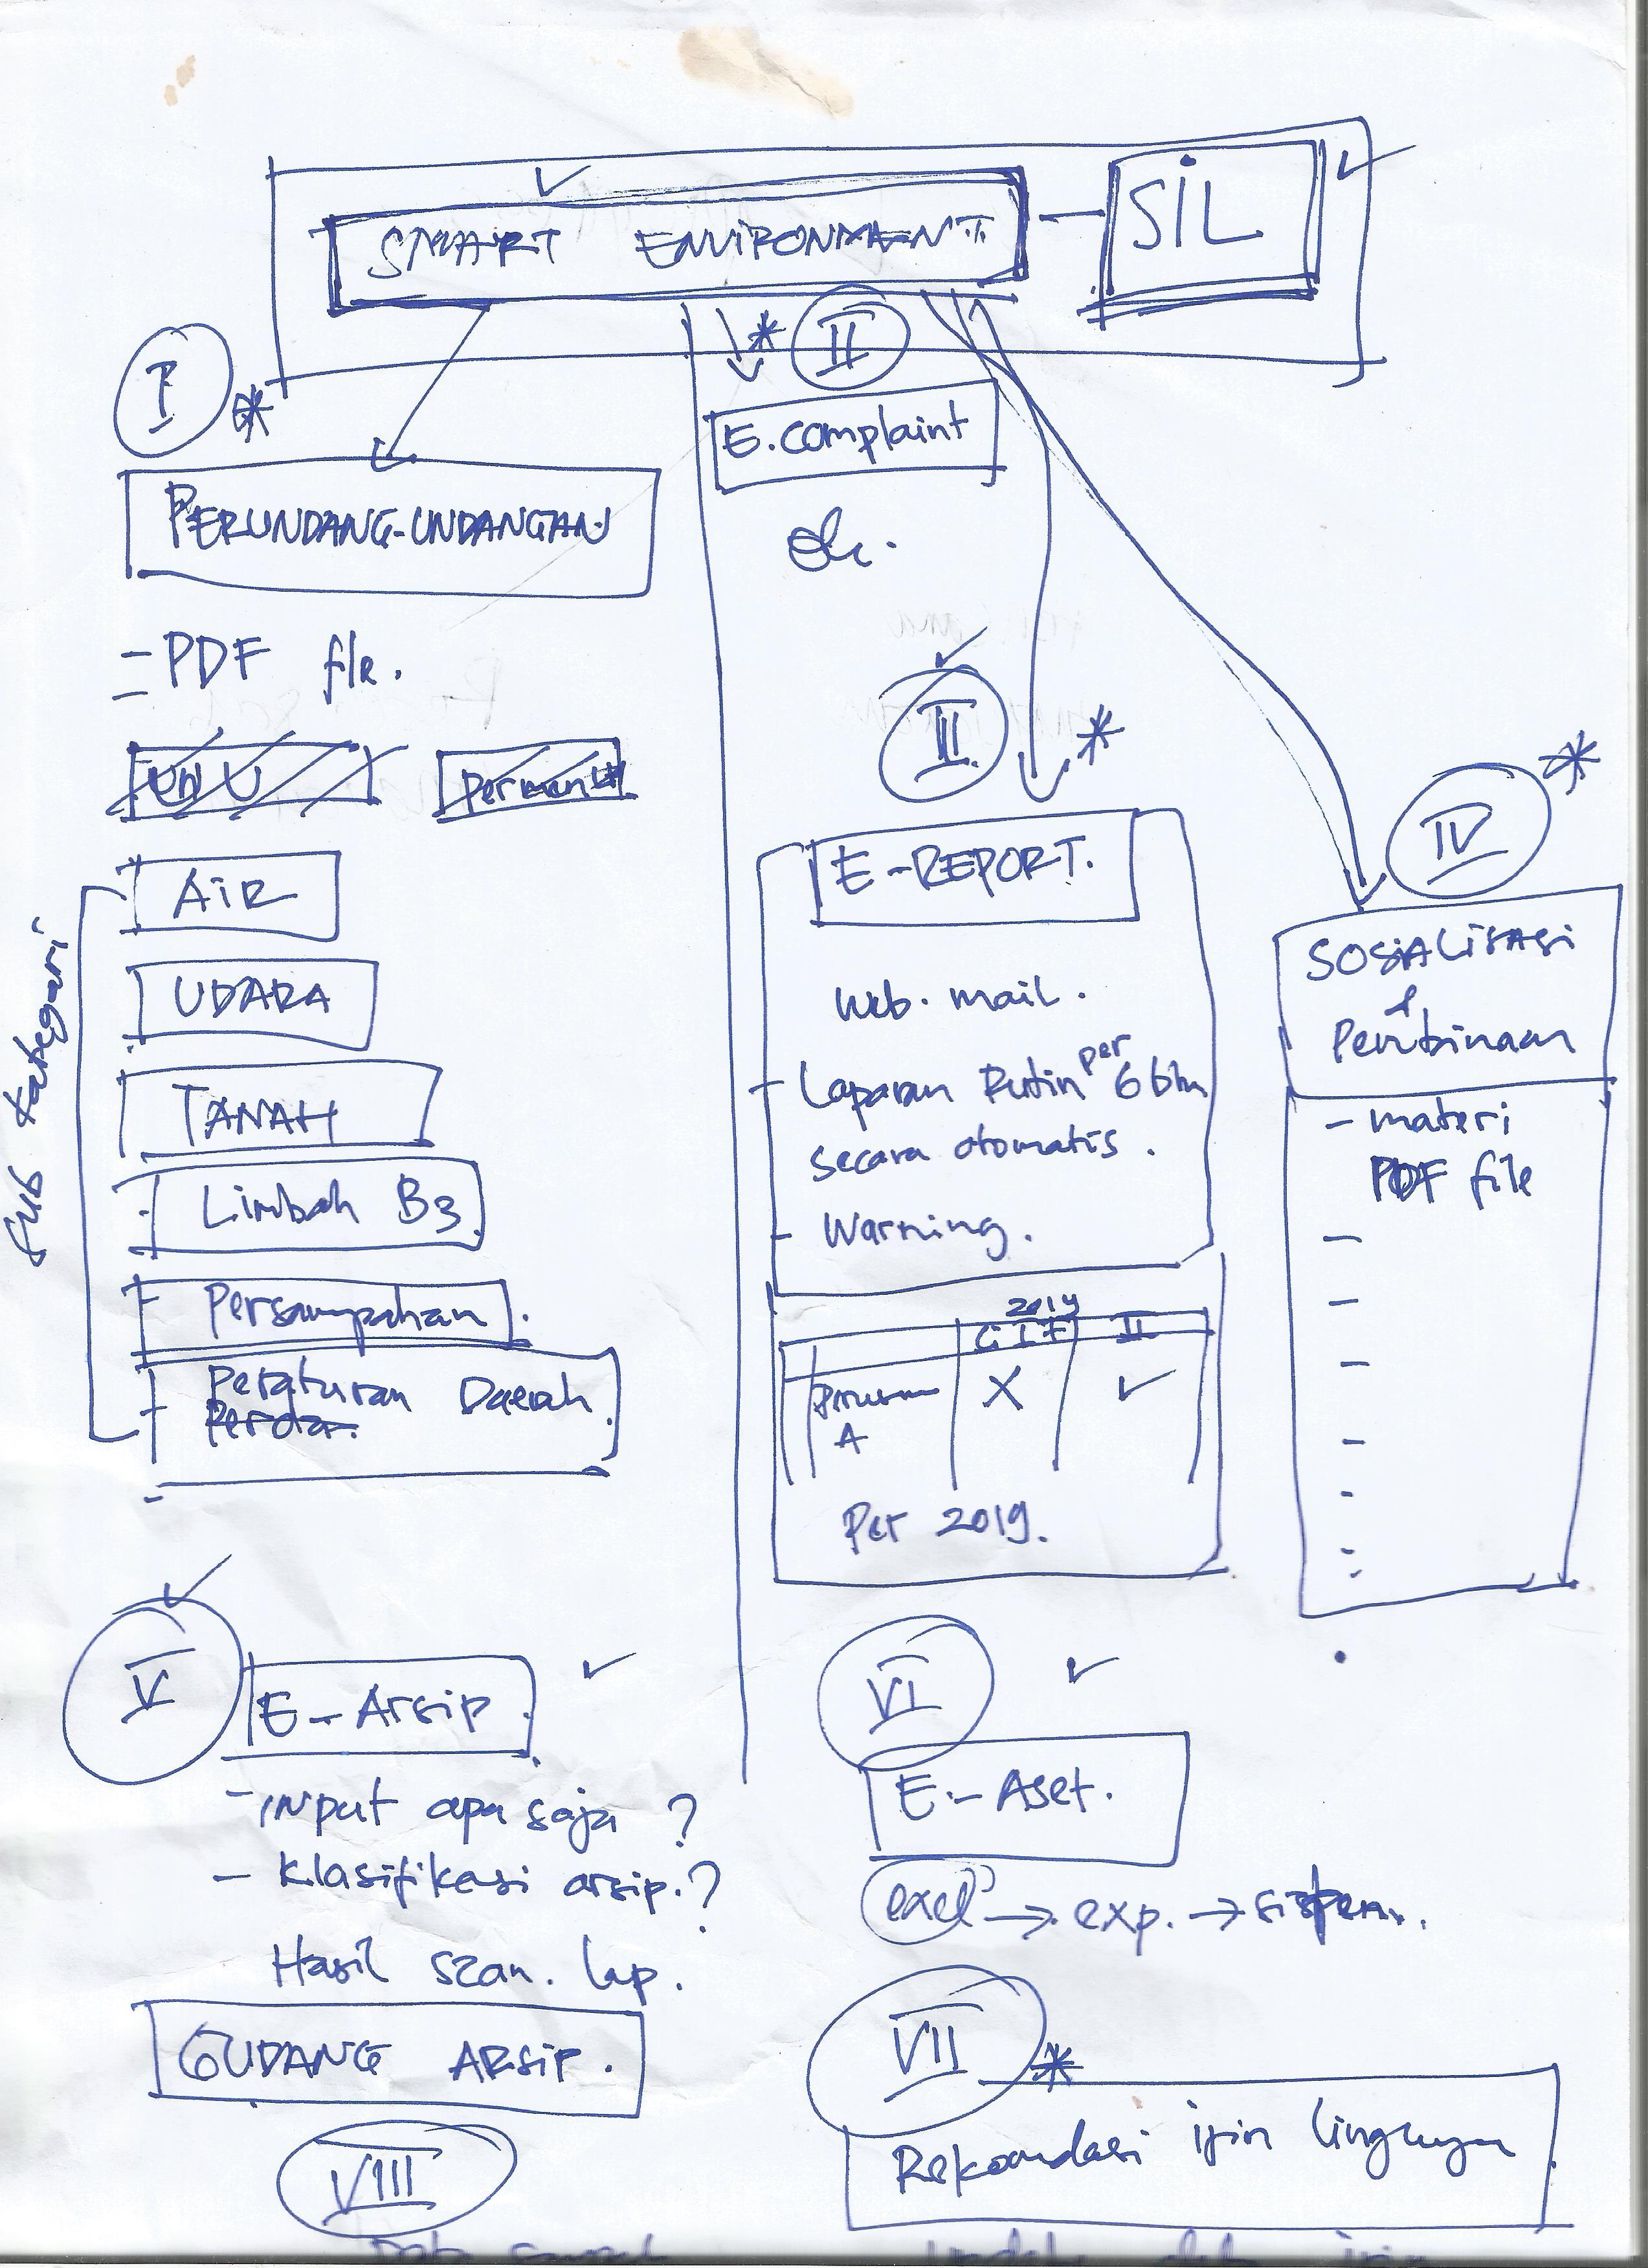 SMART ENVIRONMENT
SIL
I
*
PERUNDANG-UNDANGAN
- PDF file.
AIR
UDARA
TANAH
Limbah B3
Persampahan.
Peraturan Daerah
Perda.
Sub kategori
* II
E. complaint
ok.
III *
E-REPORT.
Web. mail.
- Laporan Rutin per 6 bln
secara otomatis.
- Warning.
2019
I II
A X ✓
Per 2019.
IV *
SOSIALISASI
&
Pembinaan
- materi
PDF file
V
E-Arsip.
- Input apa saja ?
- Klasifikasi arsip.?
Hasil scan. lap.
GUDANG ARSIP.
VIII
VI
E-Aset.
excel → exp. → sistem..
VII *
izin